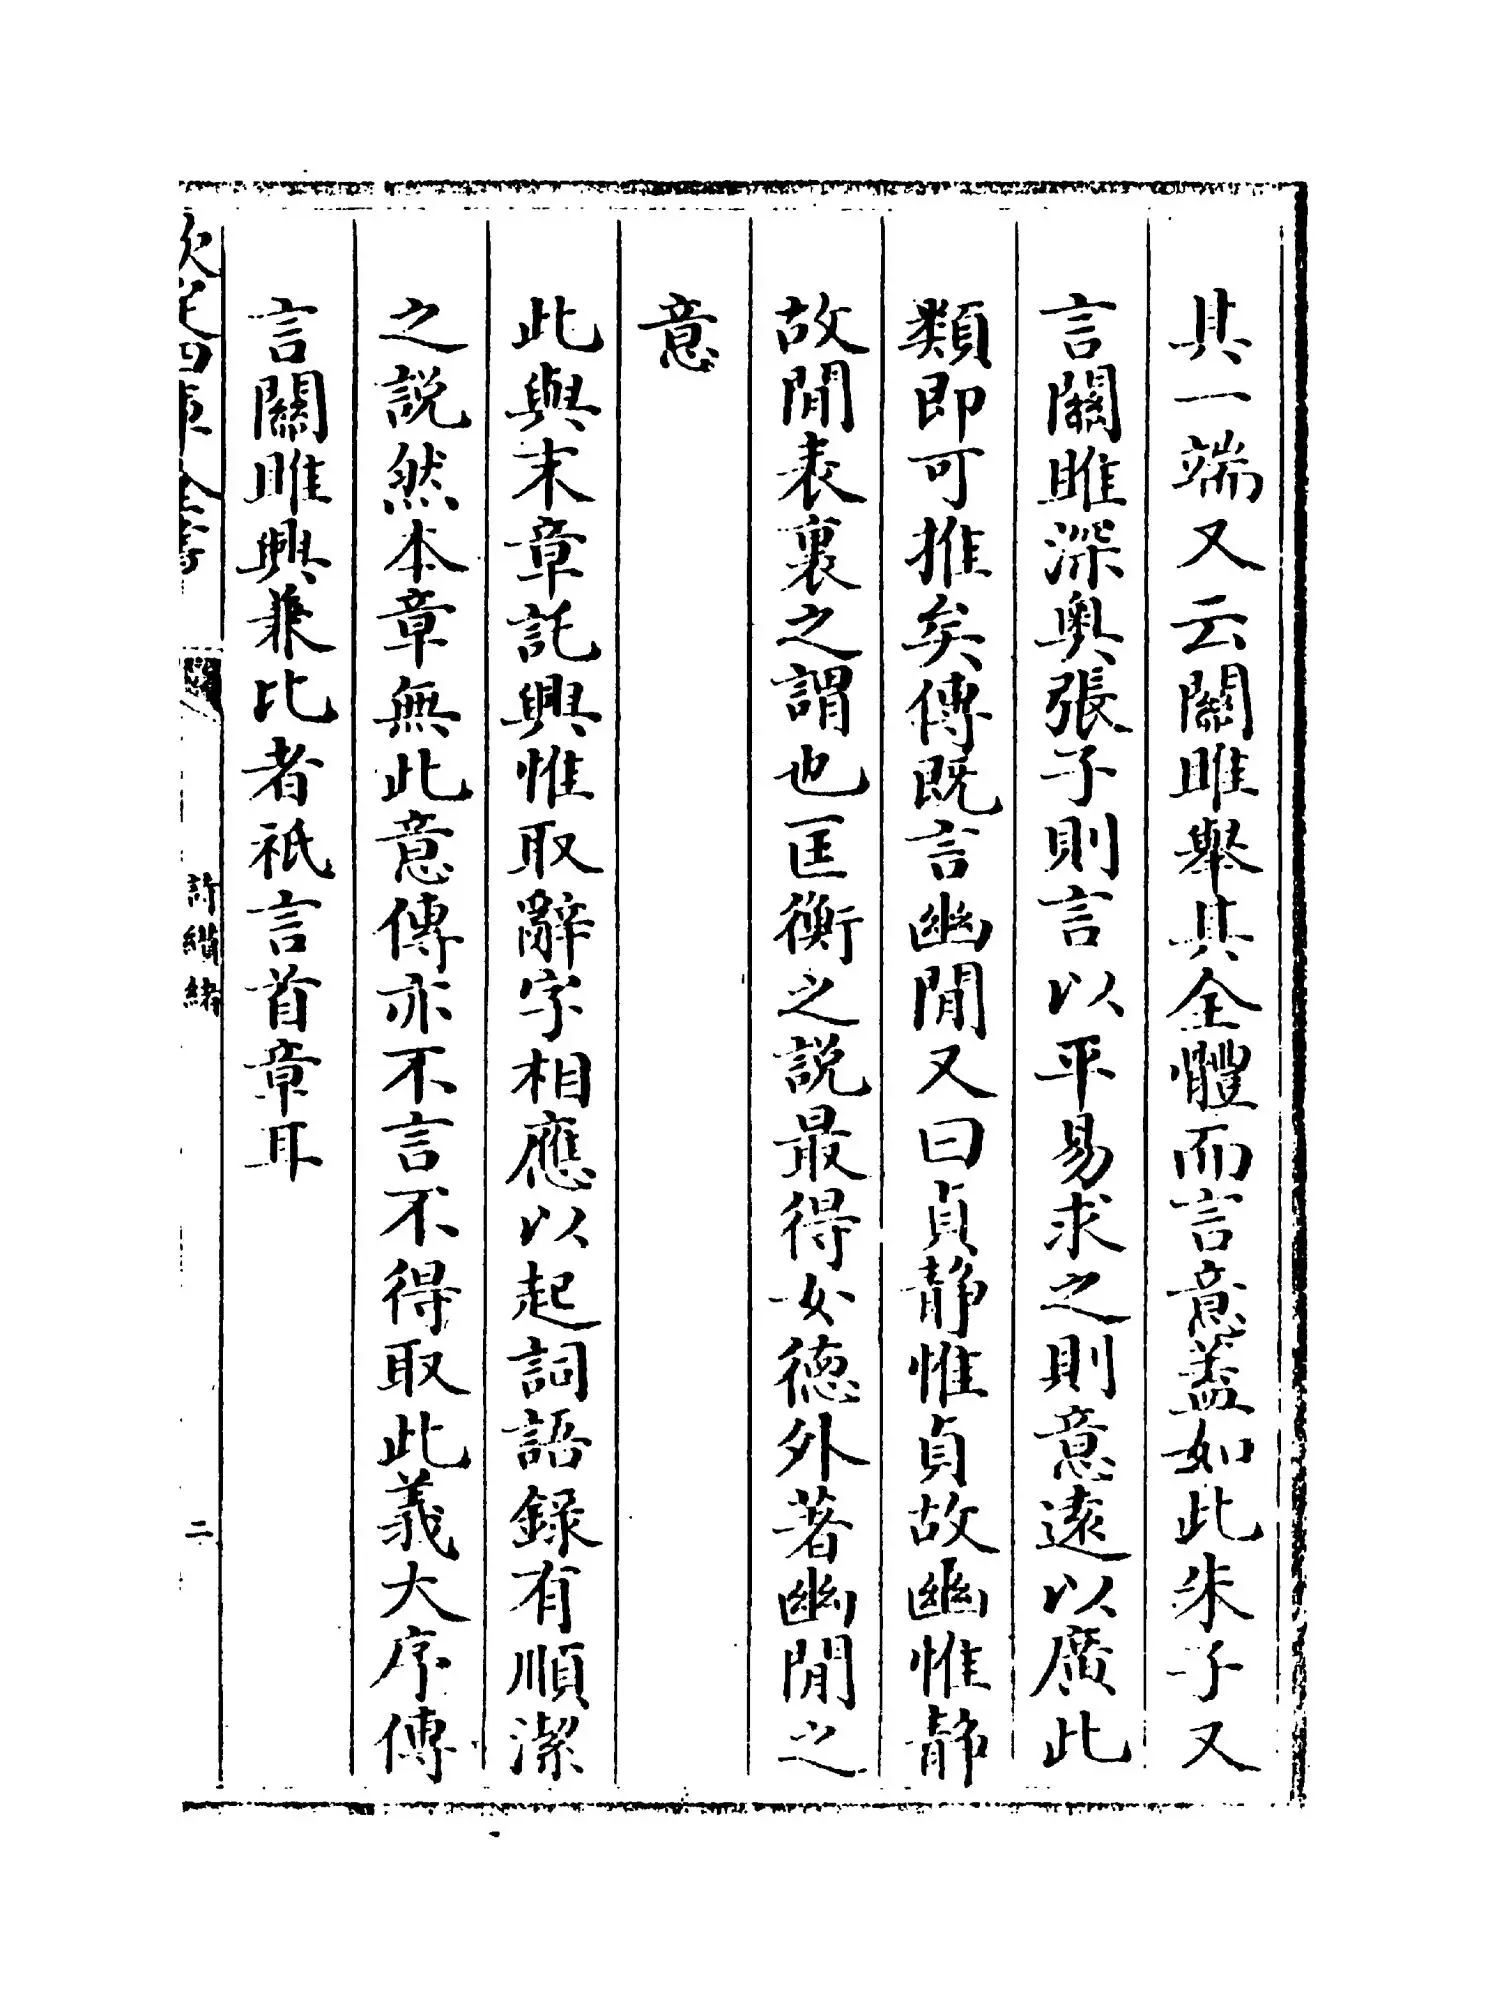 其一端又云關雎舉其全體而言意蓋如此朱子又
言關雎深奥張子則言以平易求之則意逺以廣此
類即可推矣傳既言幽閒又曰貞静惟貞故幽惟静
故閒表裏之謂也匡衡之説最得女徳外著幽閒之
意
此與末章託興惟取辭字相應以起詞語録有順潔
之説然本章無此意傳亦不言不得取此義大序傳
言關雎興兼比者祇言首章耳
欽定四庫全書
詩纘緒
二